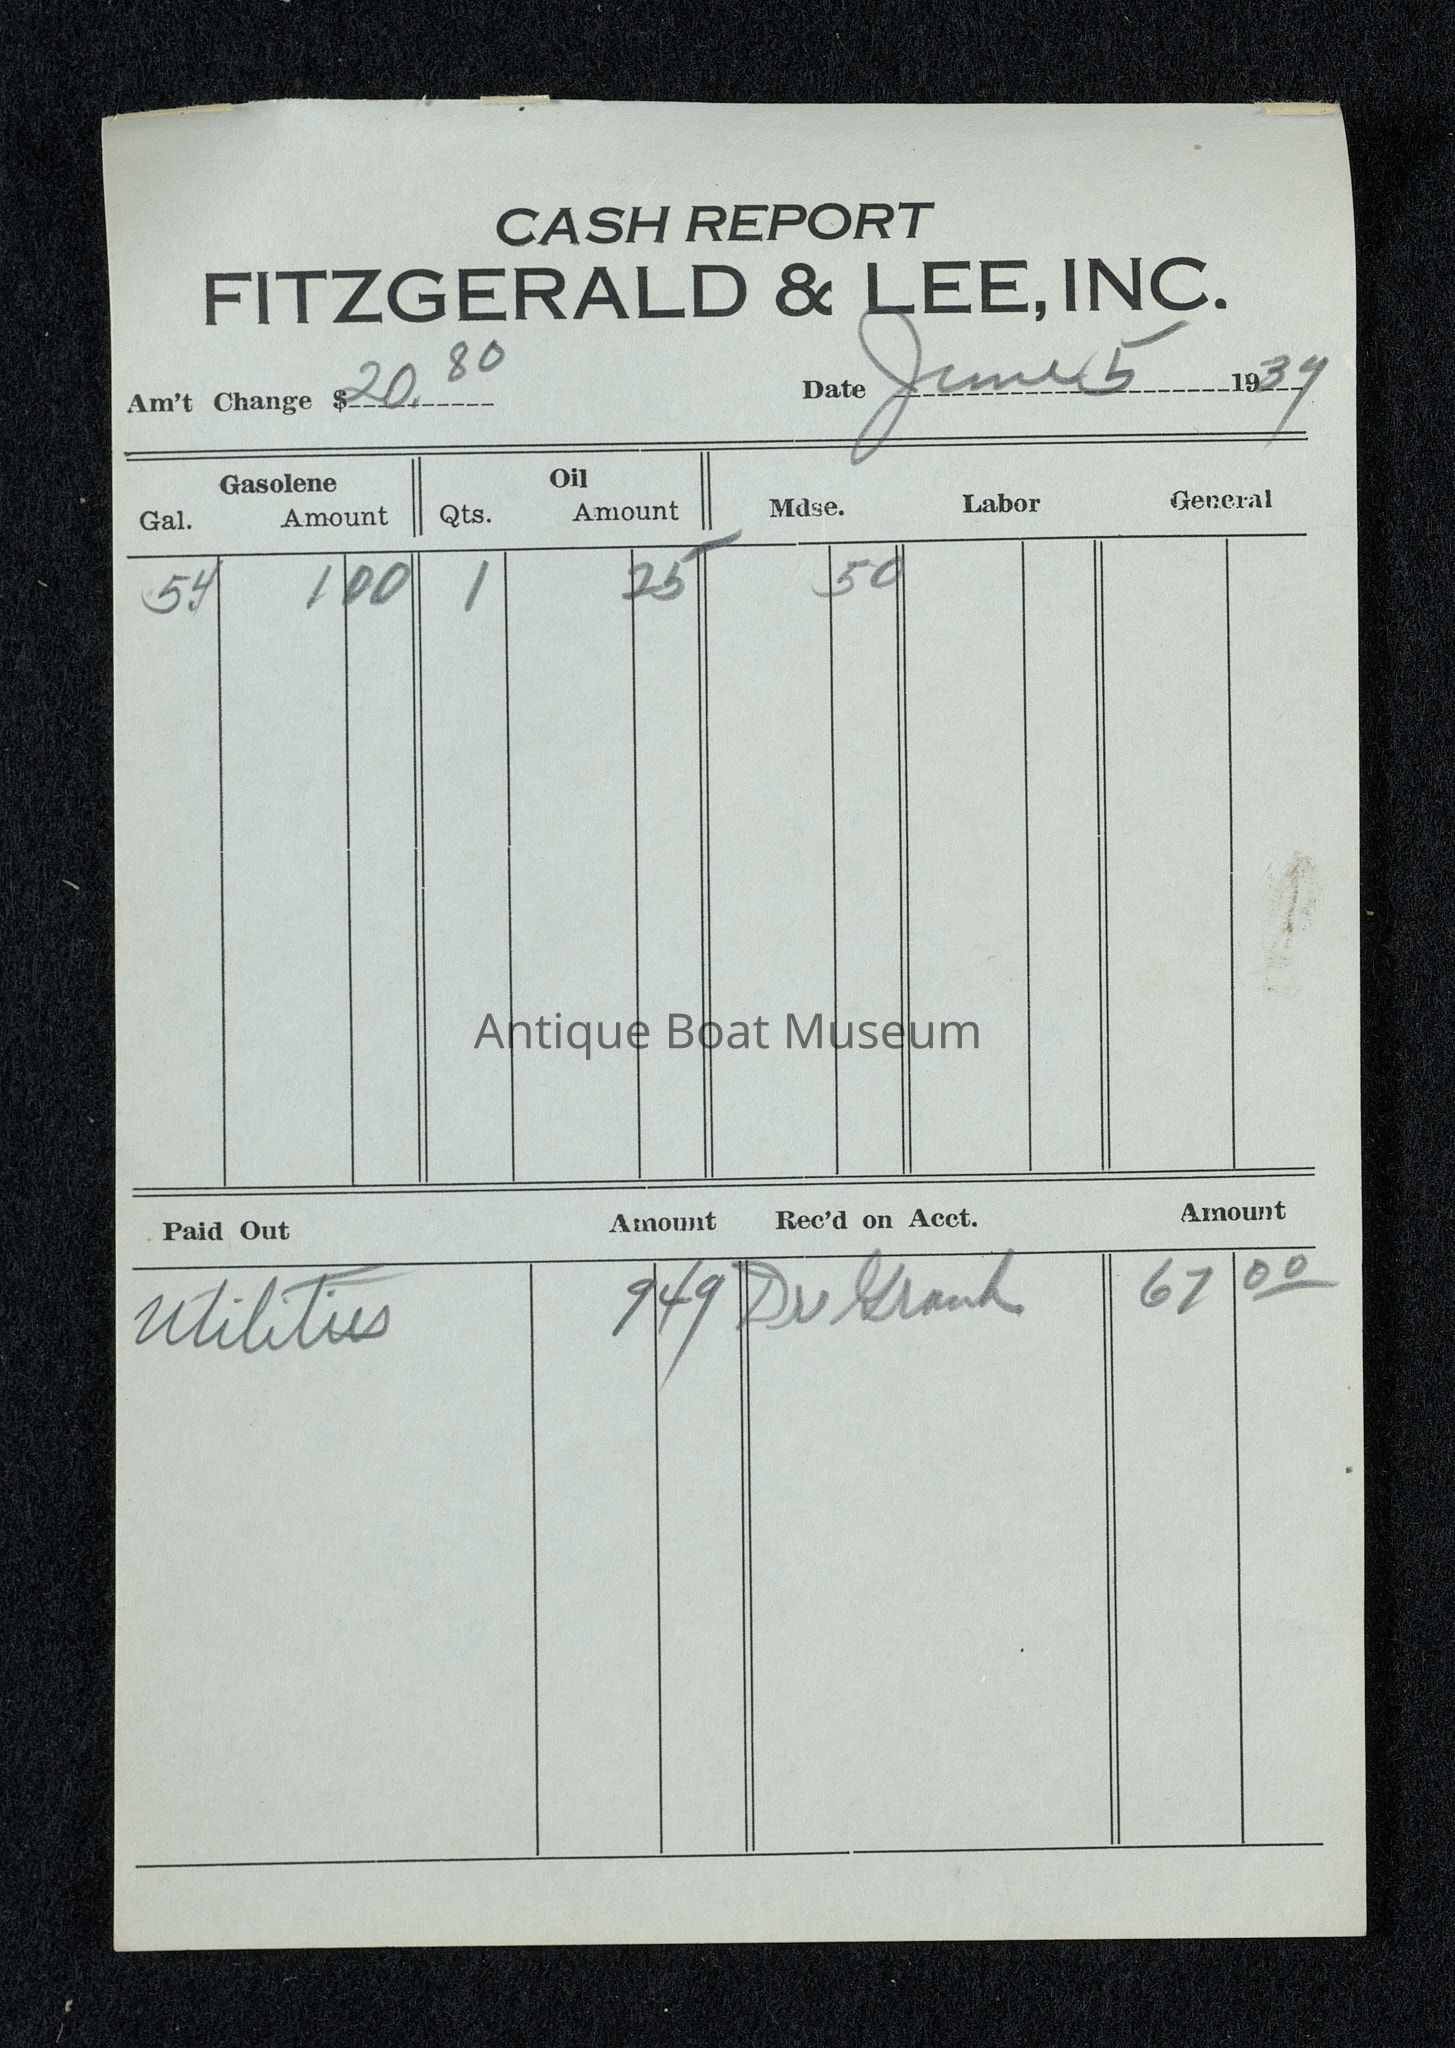 CASH REPORT
FITZGERALD & LEE, INC.
Am't Change $20.80 Date June 5 1939
Gasolene Oil
Gal. Amount Qts. Amount Mdse. Labor General
1 00 1 25 50
Antique Boat Museum
Paid Out Amount Rec'd on Acct. Amount
Utilities 9 49 Dr 67 00